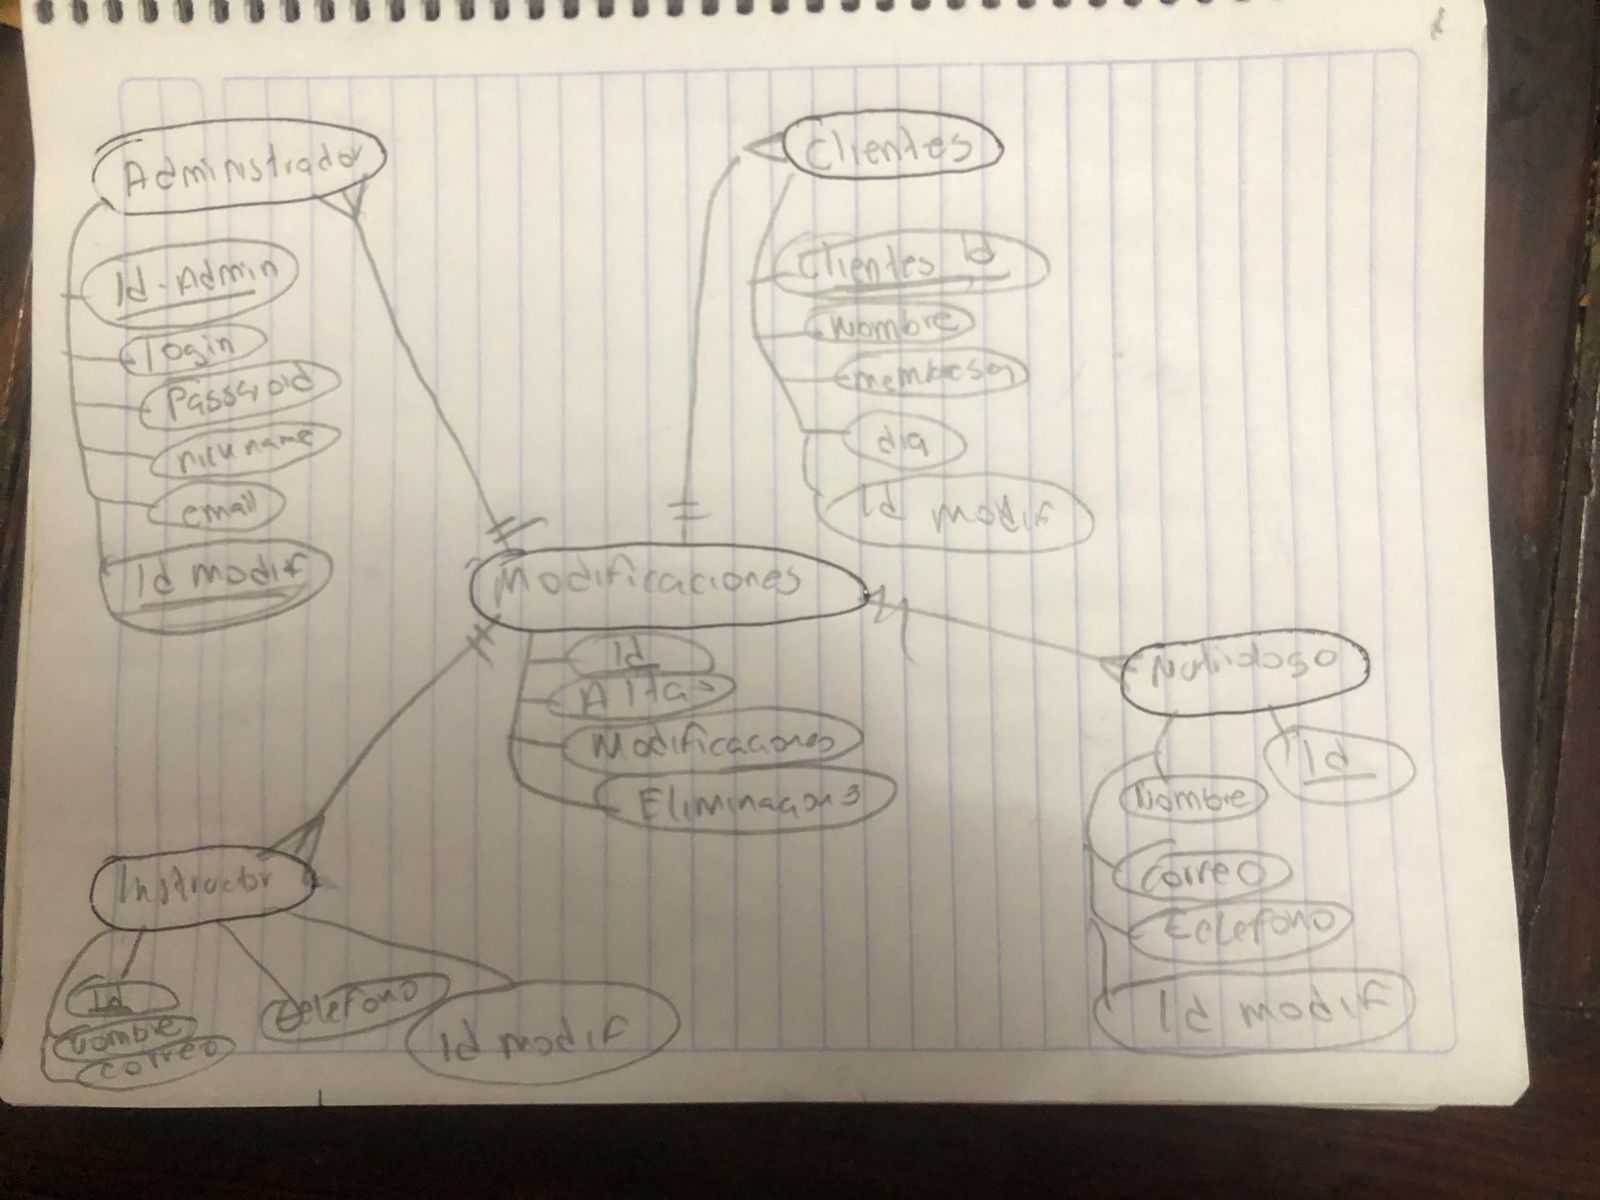 Administrador
Id-Admin
login
Password
nickname
email
Id modif
Clientes
Clientes Id
Nombre
membresa
dia
Id modif
Modificaciones
Id
Altas
Modificaciones
Eliminacions
Nutriologo
Id
Nombre
correo
telefono
Id modif
Instructor
Id
nombre
correo
telefono
Id modif